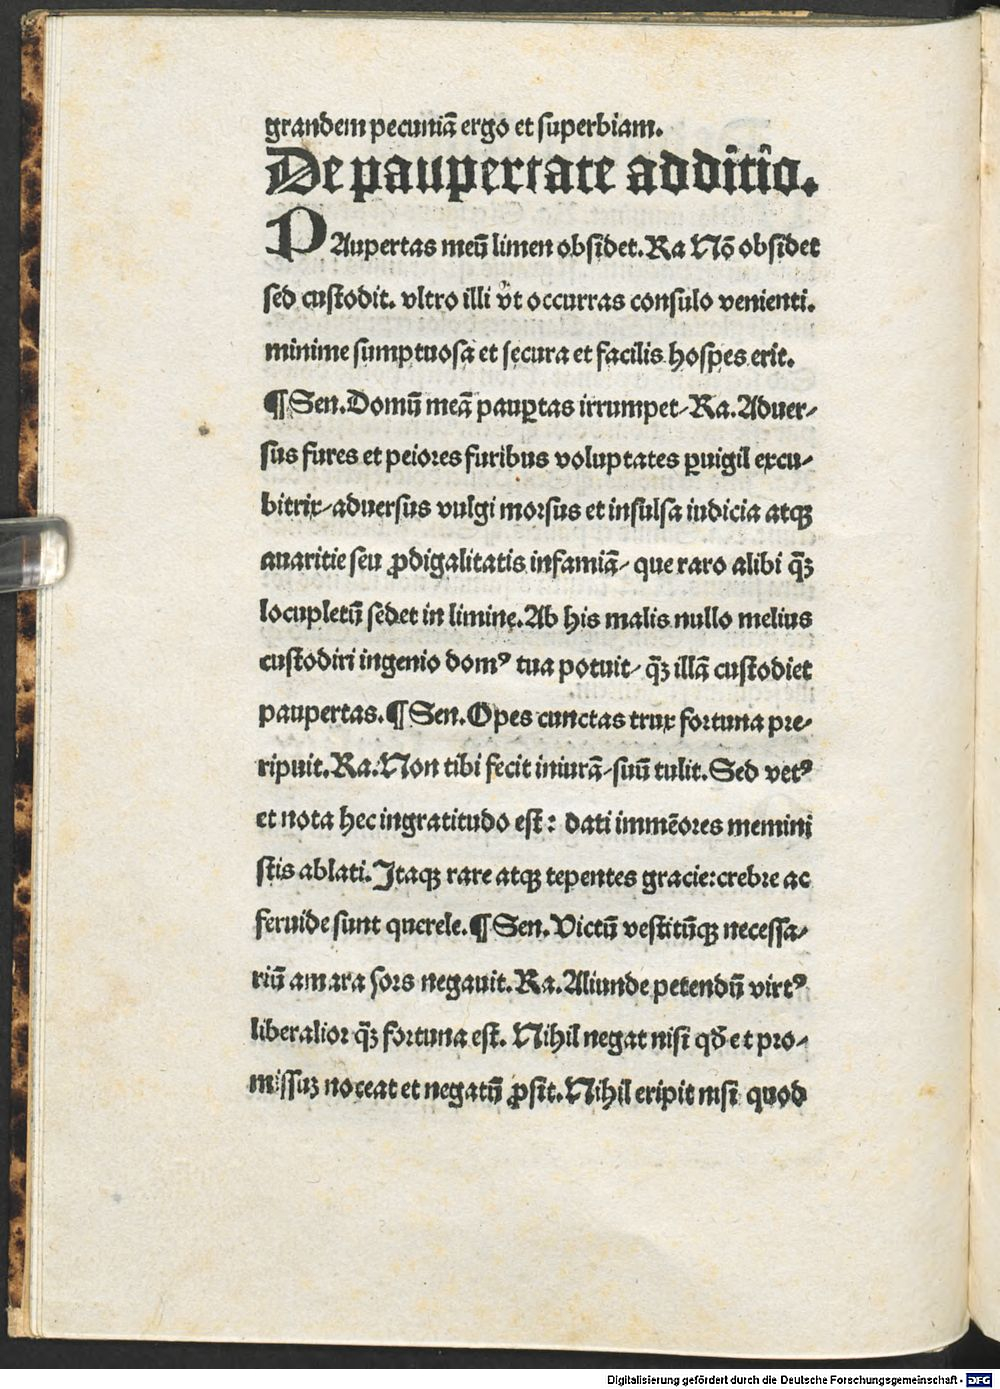 grandem pecuniā ergo et superbiam.
De paupertate additio.
PAupertas meū limen obsidet. Ra Nō obsidet
sed custodit. vltro illi vt occurras consulo venienti.
minime sumptuosa et secura et facilis hospes erit.
¶ Sen. Domū meā pauꝑtas irrumpet/ Ra. Aduer/
sus fures et peiores furibus voluptates ꝑuigil excu/
bitrix/ aduersus vulgi morsus et insulsa iudicia atqꝫ
auaritie seu ꝓdigalitatis infamiā/ que raro alibi qꝫ̄
locupletū sedet in limine. Ab his malis nullo melius
custodiri ingenio domꝰ tua potuit/ qꝫ̄ illā custodiet
paupertas. ¶ Sen. Opes cunctas trux fortuna pre/
ripuit. Ra. Non tibi fecit iniurā/ suū tulit. Sed vetꝰ
et nota hec ingratitudo est: dati immēores memini
stis ablati. Itaqꝫ rare atqꝫ tepentes gracie: crebre ac
feruide sunt querele. ¶ Sen. Victū vestitūqꝫ necessa/
riū amara sors negauit. Ra. Aliunde petendū virtꝰ
liberalior qꝫ̄ fortuna est. Nihil negat nisi qđ et pro/
missuꝫ noceat et negatū ꝓsit. Nihil eripit nisi quod
Digitalisierung gefördert durch die Deutsche Forschungsgemeinschaft - DFG